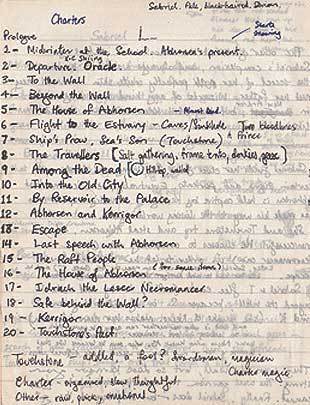 Sabriel. Pale, black haired. Demon.
Charters Sabriel
Starts
Prologue
1- Midwinter at the School. Abhorsen's present.
X-C Skiing
2- Departure. Oracle
3- To the Wall
4- Beyond the Wall
5- The House of Abhorsen
6- Flight to the Estuary - Caves/Sinkhole Two bloodlines
7- Ship's Prow, Sea's Son (Touchstone) Prince
8- The Travellers [Salt gathering, donkies, geese]
9- Among the Dead Hilltop,
10- Into the Old City
11- By Reservoir to the Palace
12- Abhorsen and Kerrigor
13- Escape
14- Last speech with Abhorsen
15- The Raft People
16- The House of Abhorsen
17- Idrach the Lesser Necromancer
18- Safe behind the Wall?
19- Kerrigor
20- Touchstone's
Touchstone - a fool? Swordsman, magician
Charter magic
Charter - organised, slow, thoughtful
Other - raw, quick, emotional